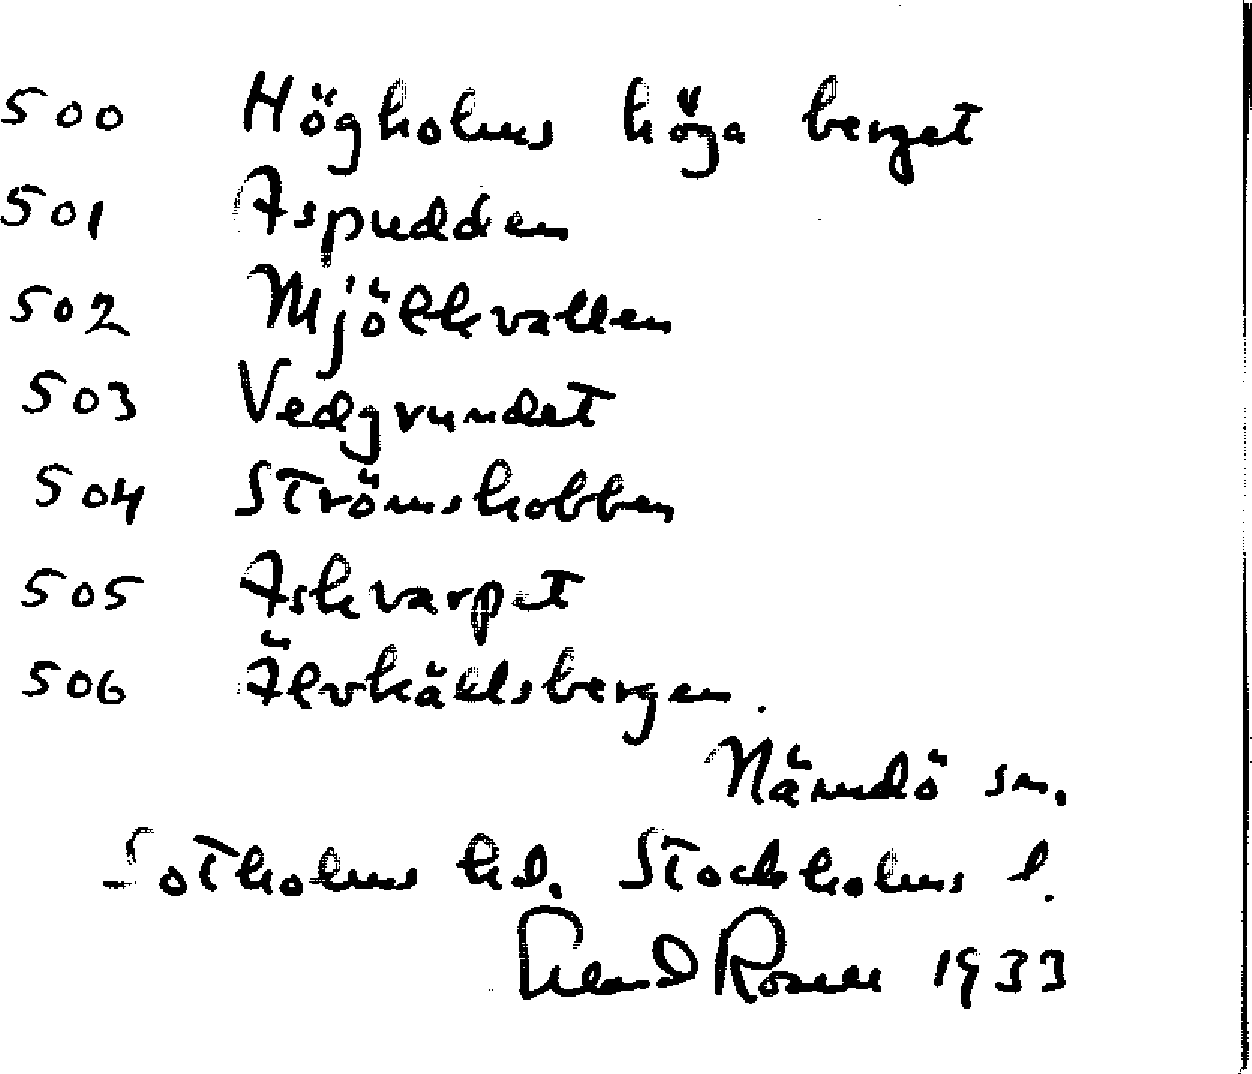 500 Högholms höga berget
501 Aspudden
502 Mjölkvallen
503 Vedgrundet
504 Strömskobben
505 Askvarpet
506 Älvkällsbergen.
Nämdö sn.
Sotholms hd. Stockholms l.
Erland Rosell 1933